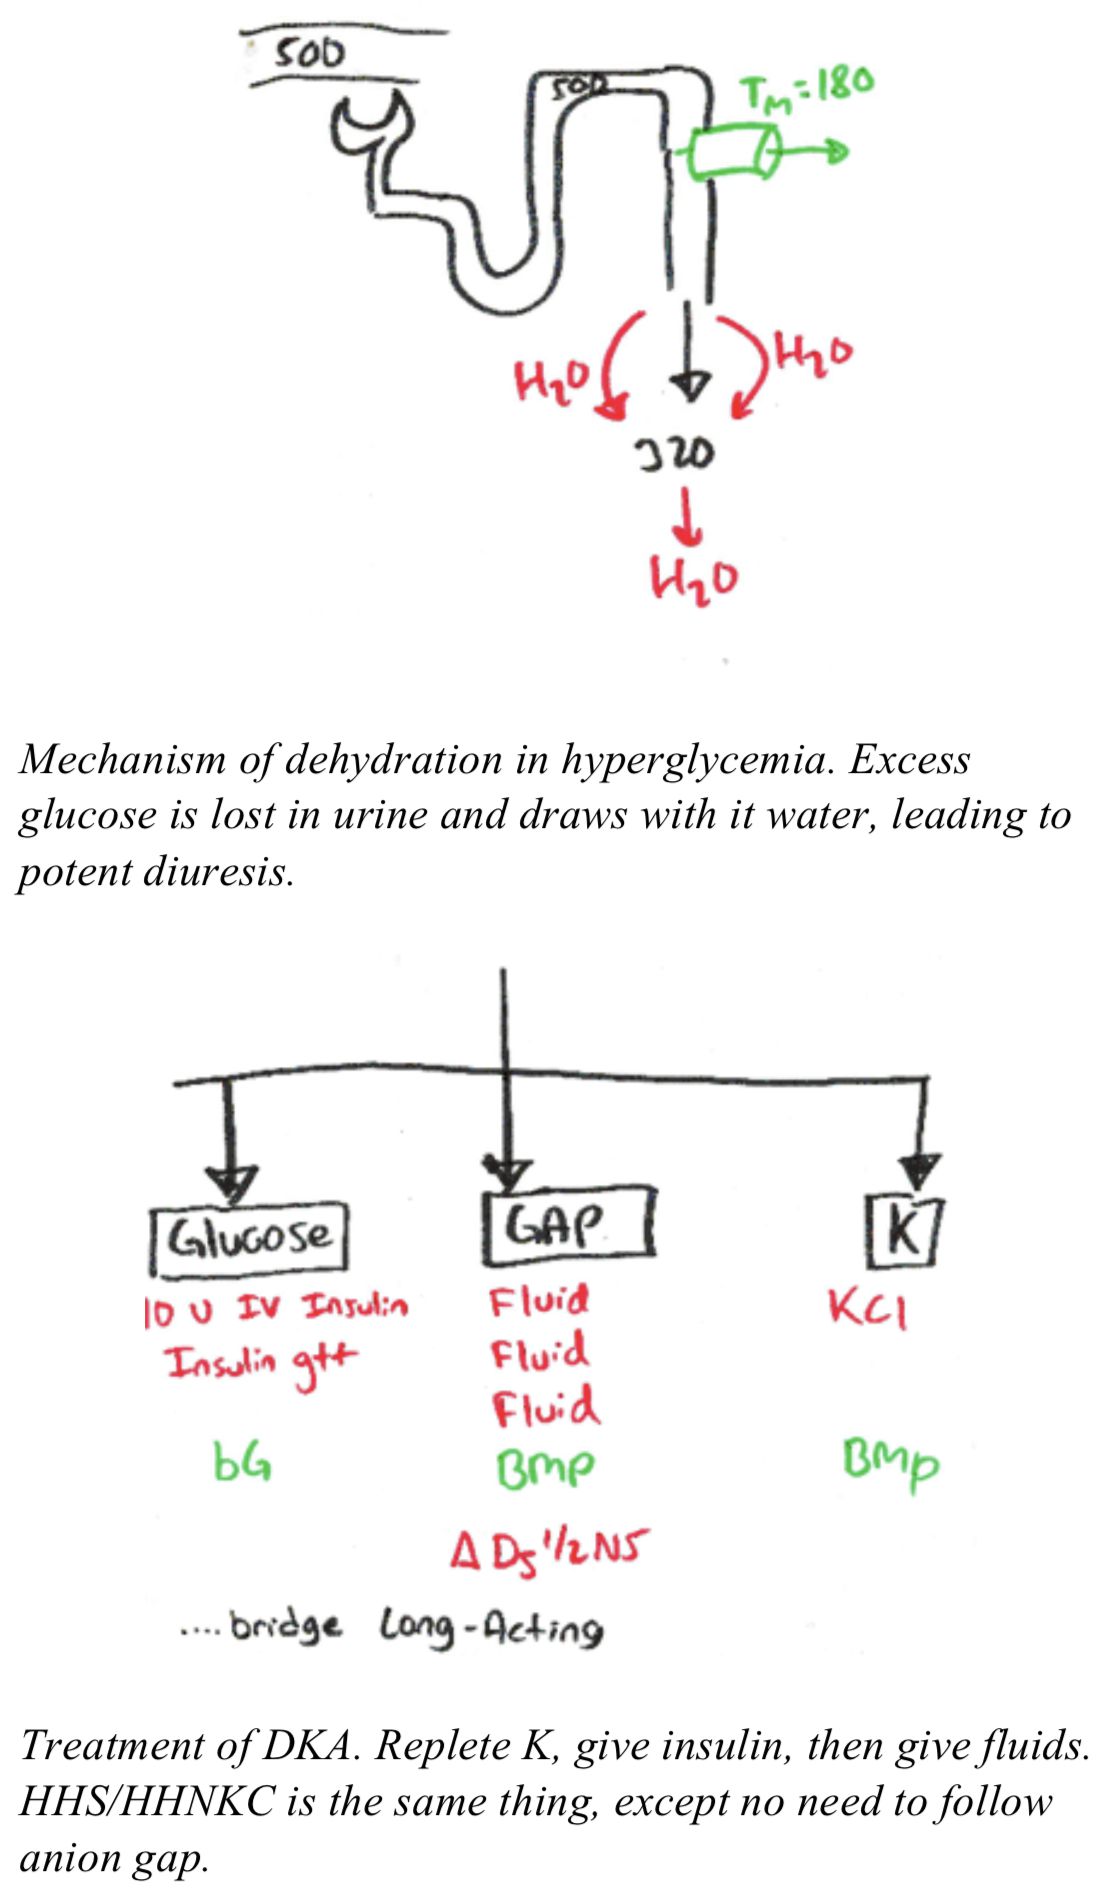 500
500
TM=180
H2O
H2O
320
H2O
Mechanism of dehydration in hyperglycemia. Excess
glucose is lost in urine and draws with it water, leading to
potent diuresis.
Glucose
GAP
K
10 U IV Insulin
Insulin gtt
Fluid
Fluid
Fluid
KCl
bG
BMP
BMP
Δ D5 1/2 NS
....bridge Long-Acting
Treatment of DKA. Replete K, give insulin, then give fluids.
HHS/HHNKC is the same thing, except no need to follow
anion gap.